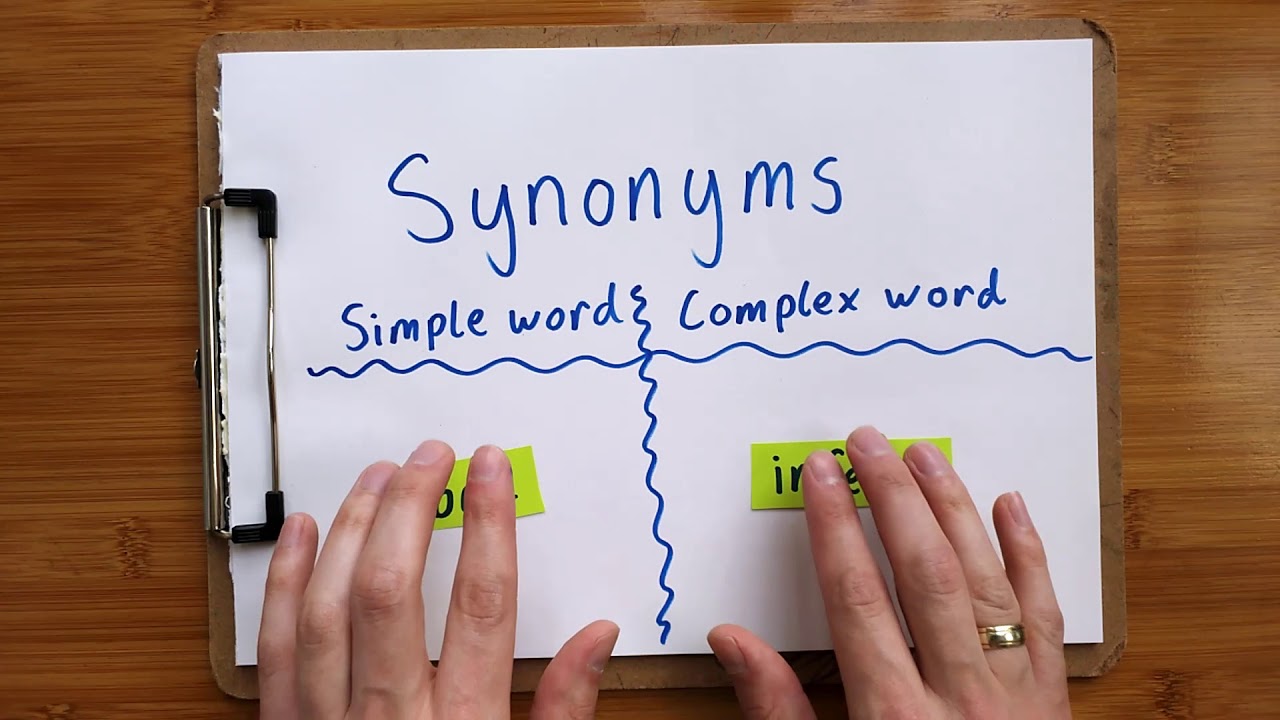 Synonyms
Simple word Complex word